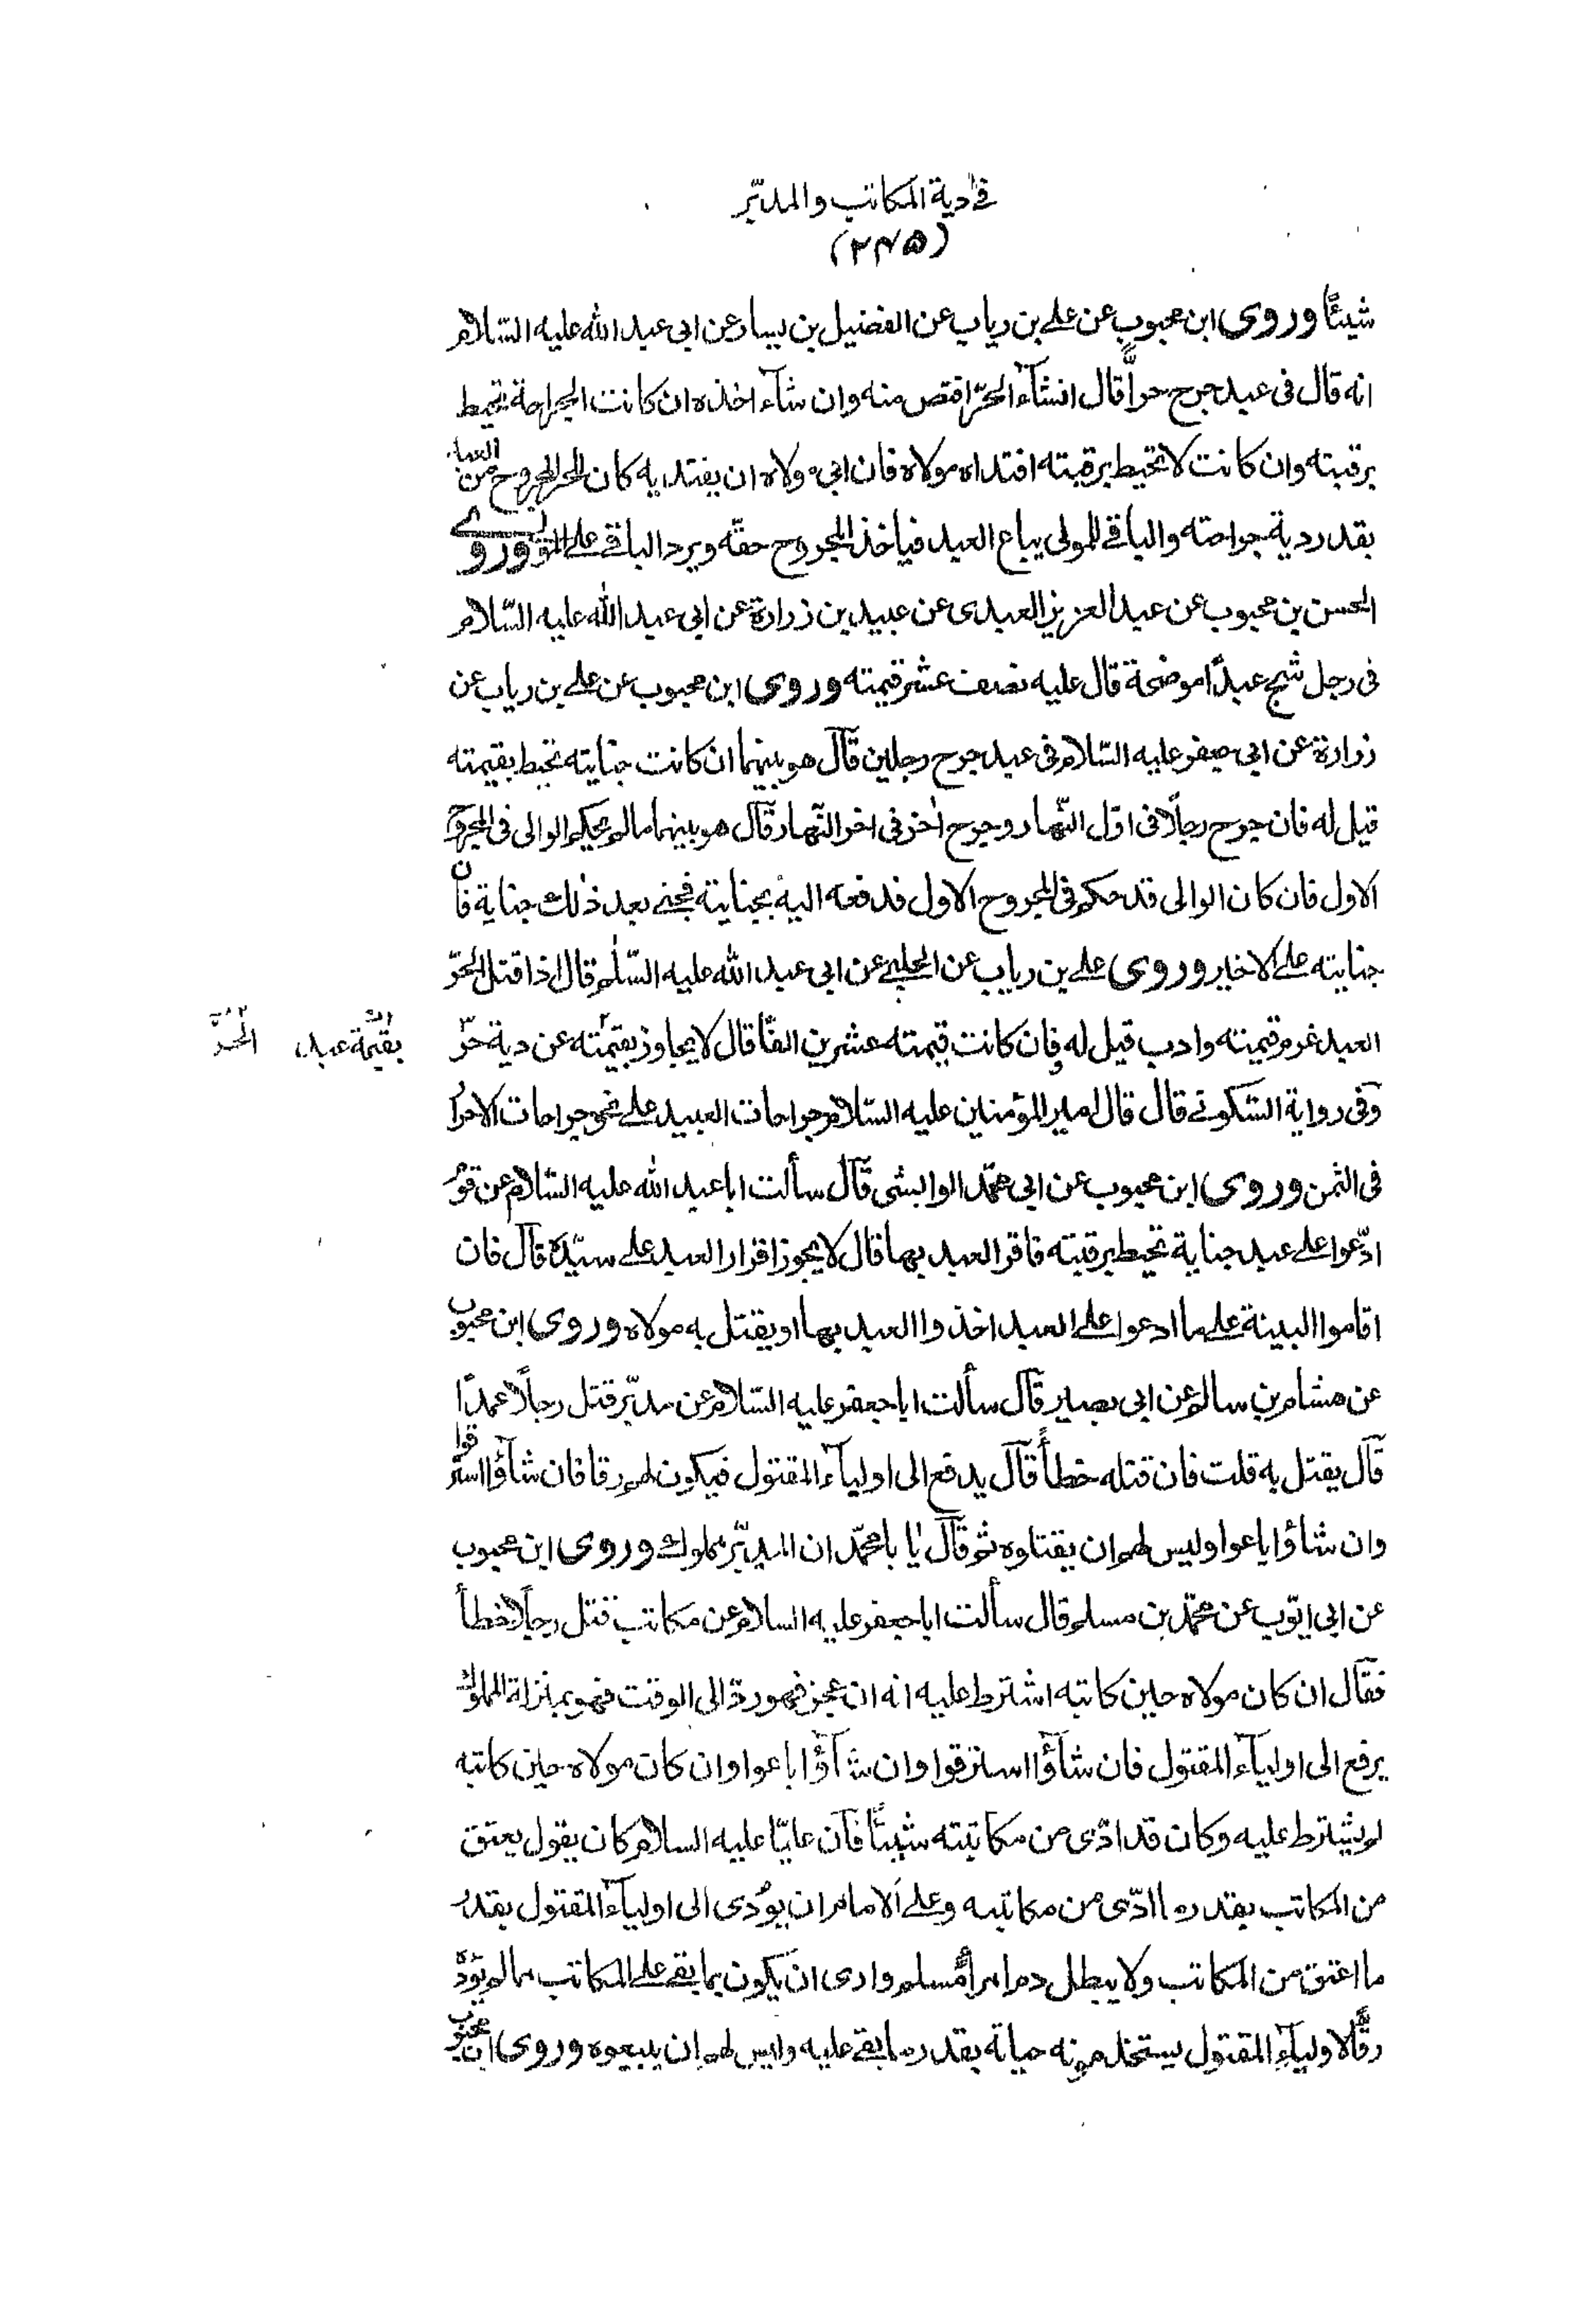 في دية المكاتب والمدبّر
(٢٣٥)
شيئًا وروى ابن محبوب عن علي بن رياب عن الفضيل بن يسار عن ابى عبد الله عليه السّلام
انه قال فى عبد جرح حرًّا قال انشآء الحرّ اقتص منه وان شآء اخذه ان كانت الجراحة تحيط
برقبته وان كانت لا تحيط برقبته افتداه مولاه فان ابى مولاه ان يفتديه كان للحر المجروح من العبد
بقدر دية جراحته والباقي للمولى يباع العبد فياخذ المجروح حقّه ويرد الباقي على المولى وروى
الحسن بن محبوب عن عبد العزيز العبدى عن عبيد بن زرارة عن ابى عبد الله عليه السّلام
فى رجل شجّ عبدًا موضحة قال عليه نصف عشر قيمته وروى ابن محبوب عن علي بن رياب عن
زرارة عن ابى جعفر عليه السّلام فى عبد جرح رجلين قال هو بينهما ان كانت جنايته تحيط بقيمته
قيل له فان جرح رجلًا فى اوّل النّهار وجرح اخر فى اخر النّهار قال هو بينهما ما لم يحكم الوالى فى المجروح
الاول فان كان الوالى قد حكم فى المجروح الاول فدفعه اليه بجنايته فجنى بعد ذلك جناية فان
جنايته على الاخير وروى علي بن رياب عن الحلبي عن ابى عبد الله عليه السّلم قال اذا قتل الحرّ
العبد غرم قيمته وادب قيل له فان كانت قيمته عشرين الفًا قال لا يجاوز بقيمته عن دية حرّ
بقيمة عبد
الحرّ
وفى رواية السّكونى قال قال امير المؤمنين عليه السّلام جراحات العبيد على نحو جراحات الاحرار
فى الثمن وروى ابن محبوب عن ابى محمّد الوابشى قال سألت ابا عبد الله عليه السّلام عن قوم
ادّعوا على عبد جناية تحيط برقبته فاقر العبد بها قال لا يجوز اقرار العبد على سيّده قال فان
اقاموا البينة على ما ادعوا على العبد اخذوا العبد بها او يفتديه مولاه وروى ابن محبوب
عن هشام بن سالم عن ابى بصير قال سألت ابا جعفر عليه السّلام عن مدبّر قتل رجلًا عمدًا
قال يقتل به قلت فان قتله خطأً قال يدفع الى اوليآء المقتول فيكون لهم رقا فان شآؤا استرقوا
وان شاؤا باعوا وليس لهم ان يقتلوه ثم قال يا با محمّد ان المدبّر مملوك وروى ابن محبوب
عن ابى ايّوب عن محمّد بن مسلم قال سألت ابا جعفر عليه السلام عن مكاتب قتل رجلًا خطأ
فقال ان كان مولاه حين كاتبه اشترط عليه انه ان عجز فهو ردّ الى الوقت فهو بمنزلة المملوك
يرفع الى اوليآء المقتول فان شآؤا استرقوا وان شآؤا باعوا وان كان مولاه حين كاتبه
لم يشترط عليه وكان قد ادّى من مكاتبته شيئًا فان عليًا عليه السلام كان يقول يعتق
من المكاتب بقدر ما ادّى من مكاتبه وعلى الامام ان يؤدى الى اوليآء المقتول بقدر
ما اعتق من المكاتب ولا يبطل دم امرأ مسلم وارى ان يكون بما بقى على المكاتب مما لم يؤدّه
رقًّا لاوليآء المقتول يستخدمونه حياته بقدر ما بقى عليه وليس لهم ان يبيعوه وروى ابن محبوب